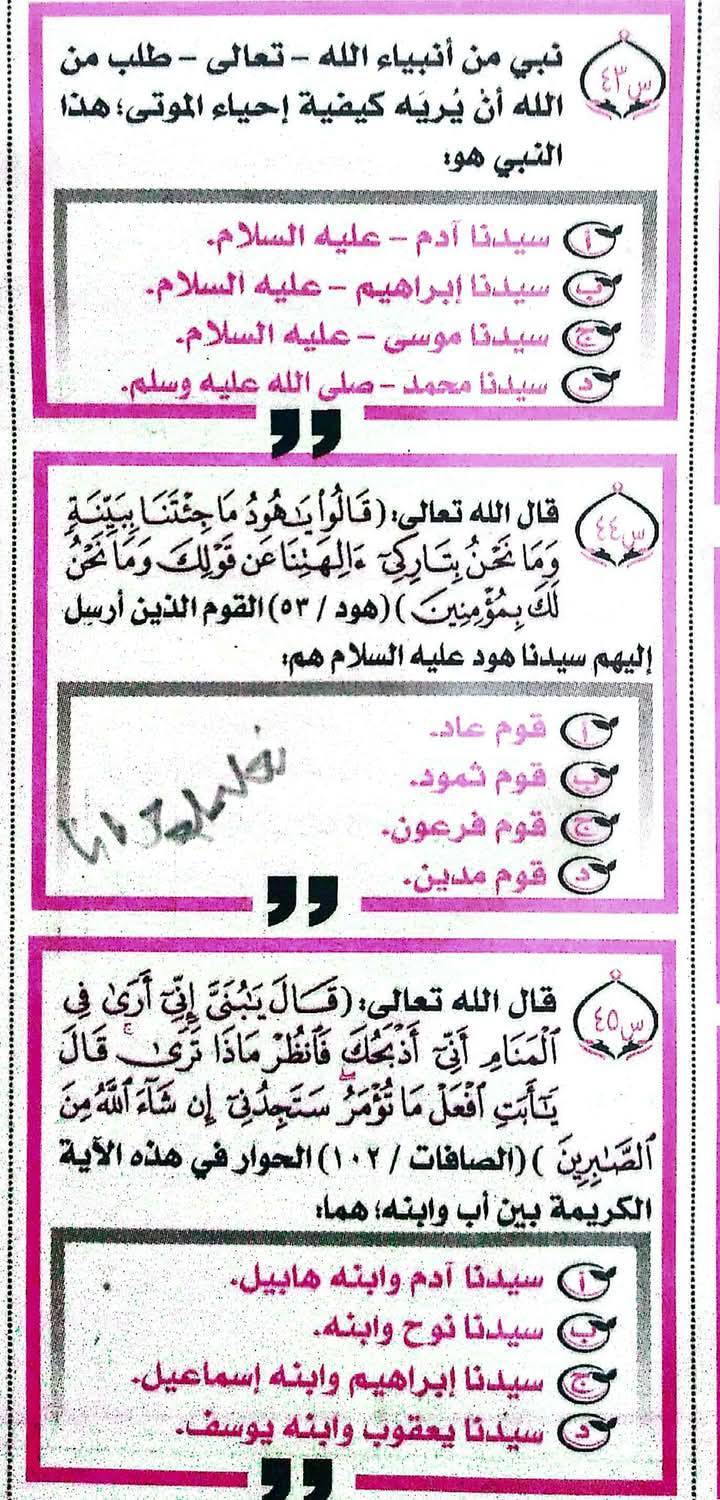 س٤٣
نبي من أنبياء الله - تعالى - طلب من
الله أنْ يُريَه كيفية إحياء الموتى؛ هذا
النبي هو:
أ سيدنا آدم - عليه السلام.
ب سيدنا إبراهيم - عليه السلام.
ج سيدنا موسى - عليه السلام.
د سيدنا محمد - صلى الله عليه وسلم.
س٤٤
قال الله تعالى: (قَالُواْ يَٰهُودُ مَا جِئْتَنَا بِبَيِّنَةٍ
وَمَا نَحْنُ بِتَارِكِىٓ ءَالِهَتِنَا عَن قَوْلِكَ وَمَا نَحْنُ
لَكَ بِمُؤْمِنِينَ) (هود / ٥٣) القوم الذين أرسل
إليهم سيدنا هود عليه السلام هم:
أ قوم عاد.
ب قوم ثمود.
ج قوم فرعون.
د قوم مدين.
س٤٥
قال الله تعالى: (قَالَ يَٰبُنَىَّ إِنِّىٓ أَرَىٰ فِى
ٱلْمَنَامِ أَنِّىٓ أَذْبَحُكَ فَٱنظُرْ مَاذَا تَرَىٰ ۚ قَالَ
يَٰٓأَبَتِ ٱفْعَلْ مَا تُؤْمَرُ ۖ سَتَجِدُنِىٓ إِن شَآءَ ٱللَّهُ مِنَ
ٱلصَّٰبِرِينَ) (الصافات / ١٠٢) الحوار في هذه الآية
الكريمة بين أب وابنه؛ هما:
أ سيدنا آدم وابنه هابيل.
ب سيدنا نوح وابنه.
ج سيدنا إبراهيم وابنه إسماعيل.
د سيدنا يعقوب وابنه يوسف.